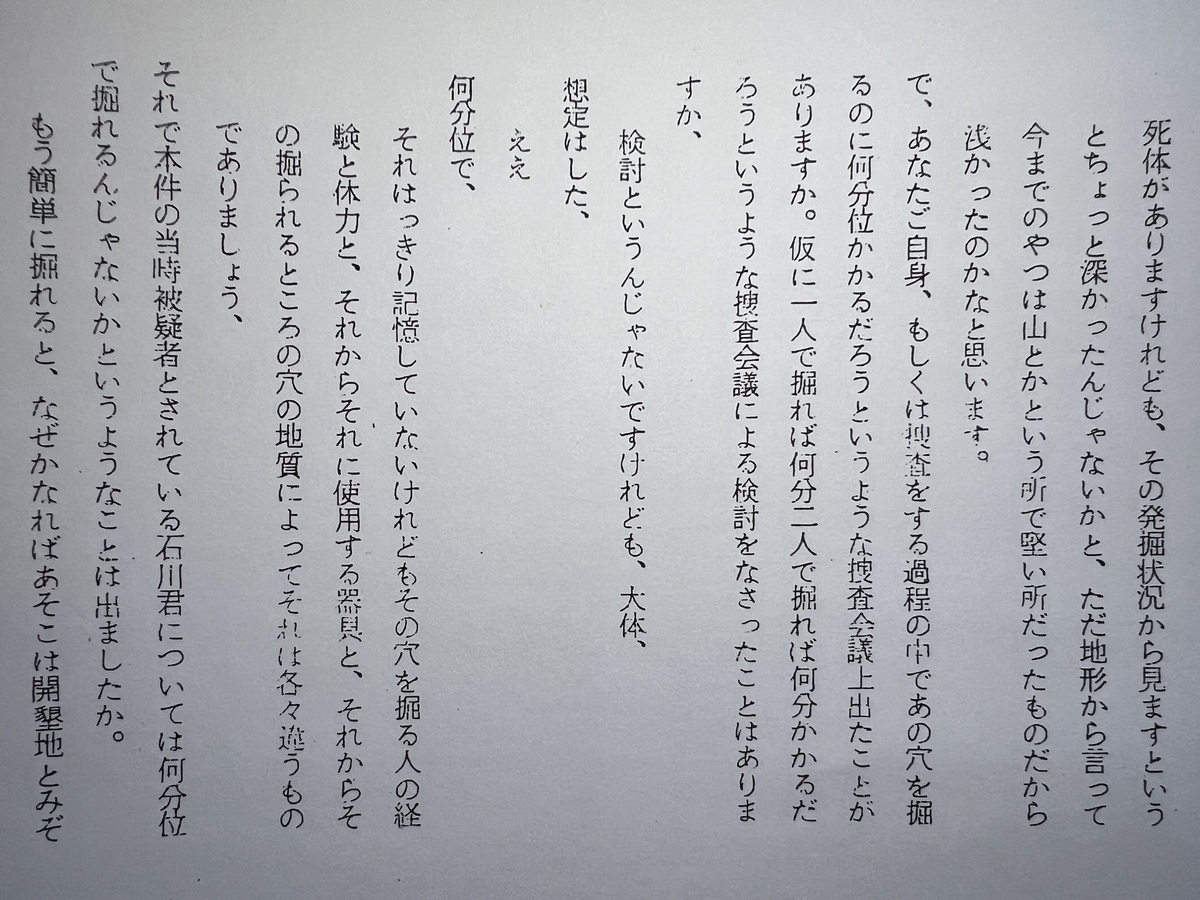 死体がありますけれども、その発掘状況から見ますという
とちょっと深かったんじゃないかと、ただ地形から言って
今までのやつは山とかという所で堅い所だったものだから
浅かったのかなと思います。
で、あなたご自身、もしくは捜査をする過程の中であの穴を掘
るのに何分位かかるだろうというような捜査会議上出たことが
ありますか。仮に一人で掘れば何分二人で掘れば何分かかるだ
ろうというような捜査会議による検討をなさったことはありま
すか、
検討というんじゃないですけれども、大体、
想定はした、
ええ
何分位で、
それはっきり記憶していないけれどもその穴を掘る人の経
験と体力と、それからそれに使用する器具と、それからそ
の掘られるところの穴の地質によってそれは各々違うもの
でありましょう、
それで本件の当時被疑者とされている石川君については何分位
で掘れるんじゃないかというようなことは出ましたか。
もう簡単に掘れると、なぜかなればあそこは開墾地とみぞ